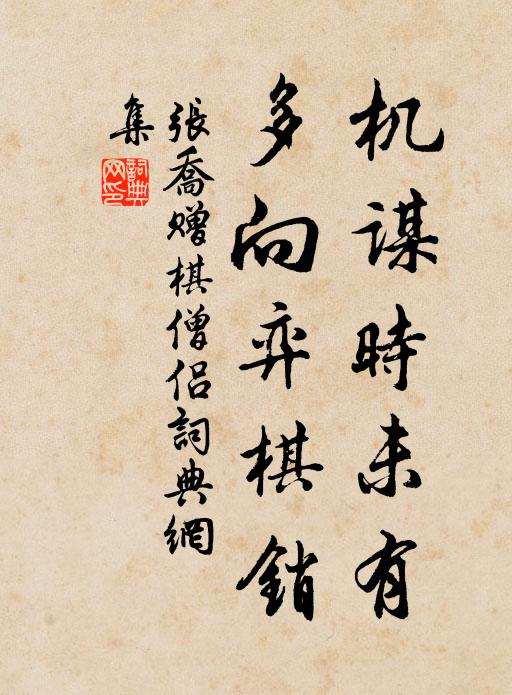 机謀時未有
多向弈棋銷
張喬贈棋僧侶詞典網
集
詞典
網印